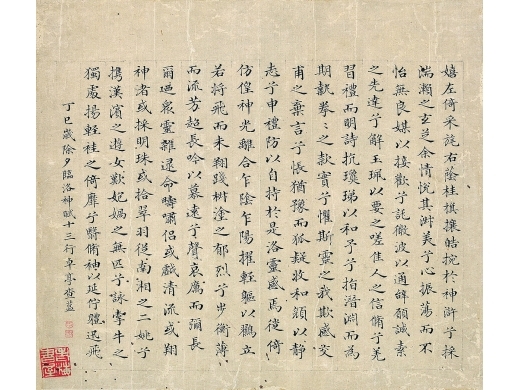 嬉左倚采旄右蔭桂旗攘皓捥於神滸兮採
湍瀨之玄芝余情悅其淑美兮心振蕩而不
怡無良媒以接歡兮託微波以通辭願誠素
之先達兮解玉珮以要之嗟佳人之信脩兮羌
習禮而明詩抗瓊珶以和予兮指潛淵而為
期執拳〻之款實兮懼斯靈之我欺感交
甫之棄言兮悵猶豫而狐疑收和顏以靜
志兮申禮防以自持於是洛靈感焉徙倚
仿偟神光離合乍陰乍陽擢輕軀以鶴立
若將飛而未翔踐椒塗之郁烈兮步衡薄
而流芳超長吟以慕遠兮聲哀厲而彌長
爾迺衆靈雜遝命疇嘯侶或戲清流或翔
神渚或採明珠或拾翠羽從南湘之二姚兮
携漢濱之遊女歎炮媧之無匹兮詠牽牛之
獨處揚輕袿之倚靡兮翳脩袖以延佇體迅飛
丁巳歲除夕臨洛神賦十三行